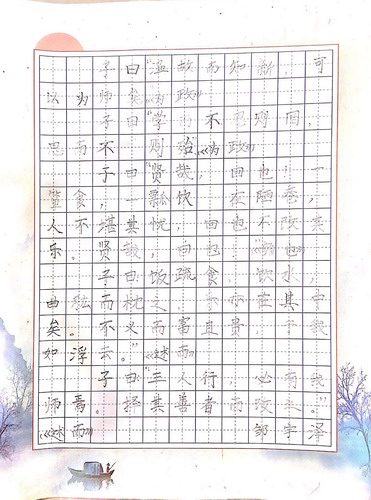 子曰：“温故而知新，可
以为师矣。”《为政》
子曰：“学而不思则罔，
思而不 则殆。”《为政》
子曰：“贤哉，回也！一
箪食，一瓢饮 在陋巷，
人不堪其忧，回也不改其
乐。贤哉，回也 《 也》
子曰：“饭疏食，饮水，
曲肱而枕之 亦在其中
矣。不义而富且贵，于我
如浮云。”《述而》
子曰：“三人行，必有我
师焉。择其善者而 之，”
《述而》 邹宇泽